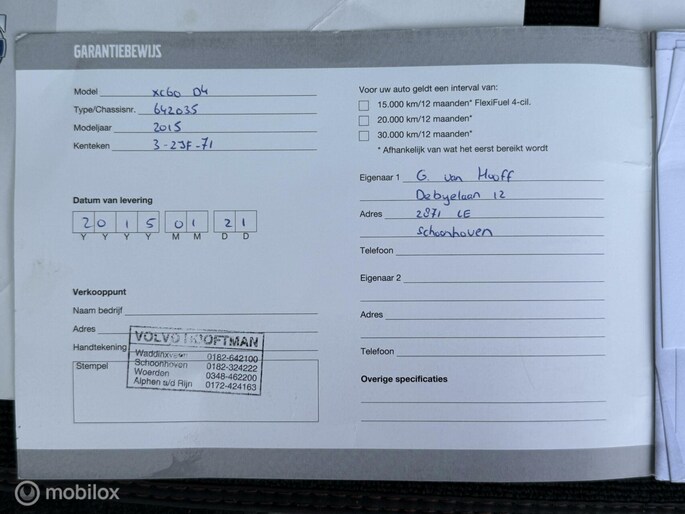 GARANTIEBEWIJS
Model XC60 D4
Type/Chassisnr. 642035
Modeljaar 2015
Kenteken 3-ZJF-71
Datum van levering
2 0 1 5 0 1 2 1
Y Y Y Y M M D D
Verkooppunt
Naam bedrijf
Adres
Handtekening
Stempel
VOLVO HOOFTMAN
Waddinxveen 0182-642100
Schoonhoven 0182-324222
Woerden 0348-462200
Alphen a/d Rijn 0172-424163
Voor uw auto geldt een interval van:
15.000 km/12 maanden* FlexiFuel 4-cil.
20.000 km/12 maanden*
30.000 km/12 maanden*
* Afhankelijk van wat het eerst bereikt wordt
Eigenaar 1 G. van Hooff
Debyelaan 12
Adres 2871 LE
Schoonhoven
Telefoon
Eigenaar 2
Adres
Telefoon
Overige specificaties
mobilox